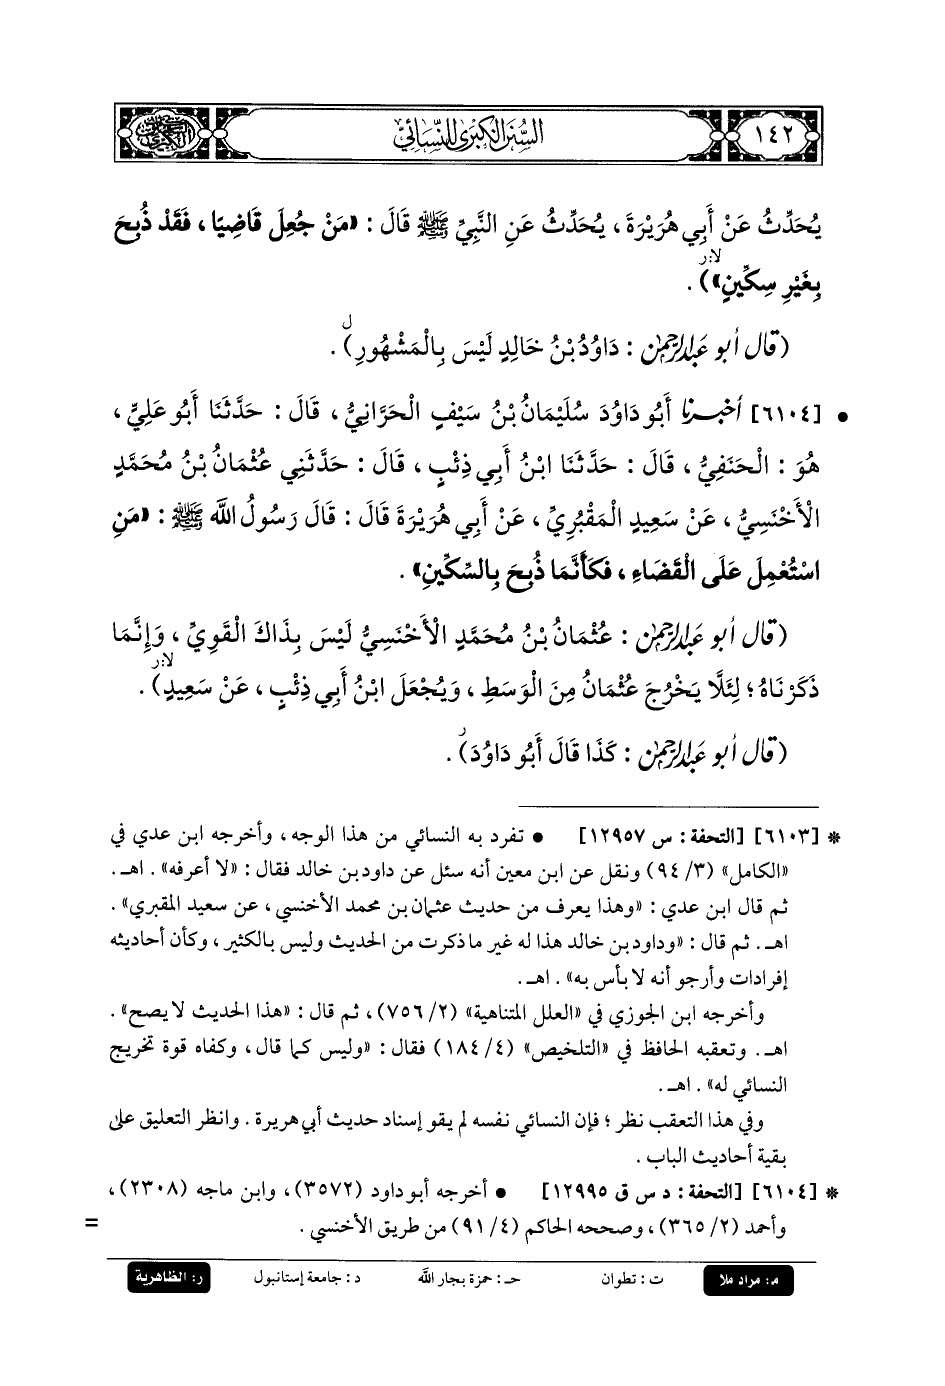 السنن الكبرى للنسائي
١٤٢
يُحَدِّثُ عَنْ أَبِي هُرَيْرَةَ ، يُحَدِّثُ عَنِ النَّبِيِّ ﷺ قَالَ : «مَنْ جُعِلَ قَاضِيًا ، فَقَدْ ذُبِحَ
بِغَيْرِ سِكِّينٍ»)لا:ر .
(قال أبو عبد الرحمن : دَاوُدُ بْنُ خَالِدٍ لَيْسَ بِالْمَشْهُورِ)ل .
• [٦١٠٤] أخبرنا أَبُو دَاوُدَ سُلَيْمَانُ بْنُ سَيْفٍ الْحَرَّانِيُّ ، قَالَ : حَدَّثَنَا أَبُو عَلِيٍّ ،
هُوَ : الْحَنَفِيُّ ، قَالَ : حَدَّثَنَا ابْنُ أَبِي ذِئْبٍ ، قَالَ : حَدَّثَنِي عُثْمَانُ بْنُ مُحَمَّدٍ
الْأَخْنَسِيُّ ، عَنْ سَعِيدٍ الْمَقْبُرِيِّ ، عَنْ أَبِي هُرَيْرَةَ قَالَ : قَالَ رَسُولُ اللَّهِ ﷺ : «مَنِ
اسْتُعْمِلَ عَلَى الْقَضَاءِ ، فَكَأَنَّمَا ذُبِحَ بِالسِّكِّينِ» .
(قال أبو عبد الرحمن : عُثْمَانُ بْنُ مُحَمَّدٍ الْأَخْنَسِيُّ لَيْسَ بِذَاكَ الْقَوِيِّ ، وَإِنَّمَا
ذَكَرْنَاهُ ؛ لِئَلَّا يَخْرُجَ عُثْمَانُ مِنَ الْوَسَطِ ، وَيُجْعَلَ ابْنُ أَبِي ذِئْبٍ ، عَنْ سَعِيدٍ)لا:ر .
(قال أبو عبد الرحمن : كَذَا قَالَ أَبُو دَاوُدَ)ر .
* [٦١٠٣] [التحفة : س ١٢٩٥٧] • تفرد به النسائي من هذا الوجه ، وأخرجه ابن عدي في
«الكامل» (٣/ ٩٤) ونقل عن ابن معين أنه سئل عن داود بن خالد فقال : «لا أعرفه» . اهـ .
ثم قال ابن عدي : «وهذا يعرف من حديث عثمان بن محمد الأخنسي ، عن سعيد المقبري» .
اهـ . ثم قال : «وداود بن خالد هذا له غير ما ذكرت من الحديث وليس بالكثير ، وكأن أحاديثه
إفرادات وأرجو أنه لا بأس به» . اهـ .
وأخرجه ابن الجوزي في «العلل المتناهية» (٢/ ٧٥٦) ، ثم قال : «هذا الحديث لا يصح» .
اهـ . وتعقبه الحافظ في «التلخيص» (٤/ ١٨٤) فقال : «وليس كما قال ، وكفاه قوة تخريج
النسائي له» . اهـ .
وفي هذا التعقب نظر ؛ فإن النسائي نفسه لم يقو إسناد حديث أبي هريرة . وانظر التعليق على
بقية أحاديث الباب .
* [٦١٠٤] [التحفة : د س ق ١٢٩٩٥] • أخرجه أبو داود (٣٥٧٢) ، وابن ماجه (٢٣٠٨) ،
وأحمد (٢/ ٣٦٥) ، وصححه الحاكم (٤/ ٩١) من طريق الأخنسي . =
م: مراد ملا ت : تطوان حـ : حمزة بجار اللَّه د : جامعة إستانبول ر: الظاهرية